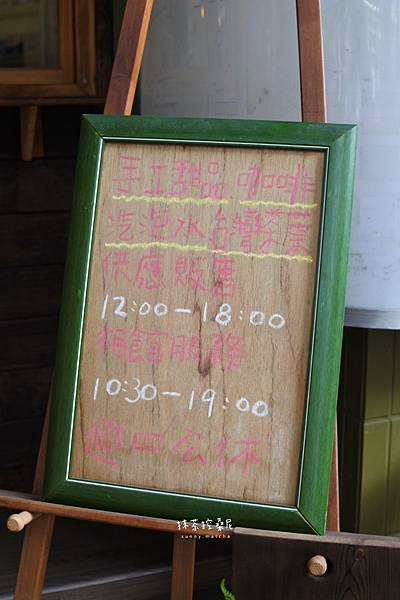 手工甜品 咖啡
汽泡水 台灣茶葉
供應販售
12:00－18:00
相館服務
10:30－19:00
週四公休
抹茶控桑尼
sunny.matcha